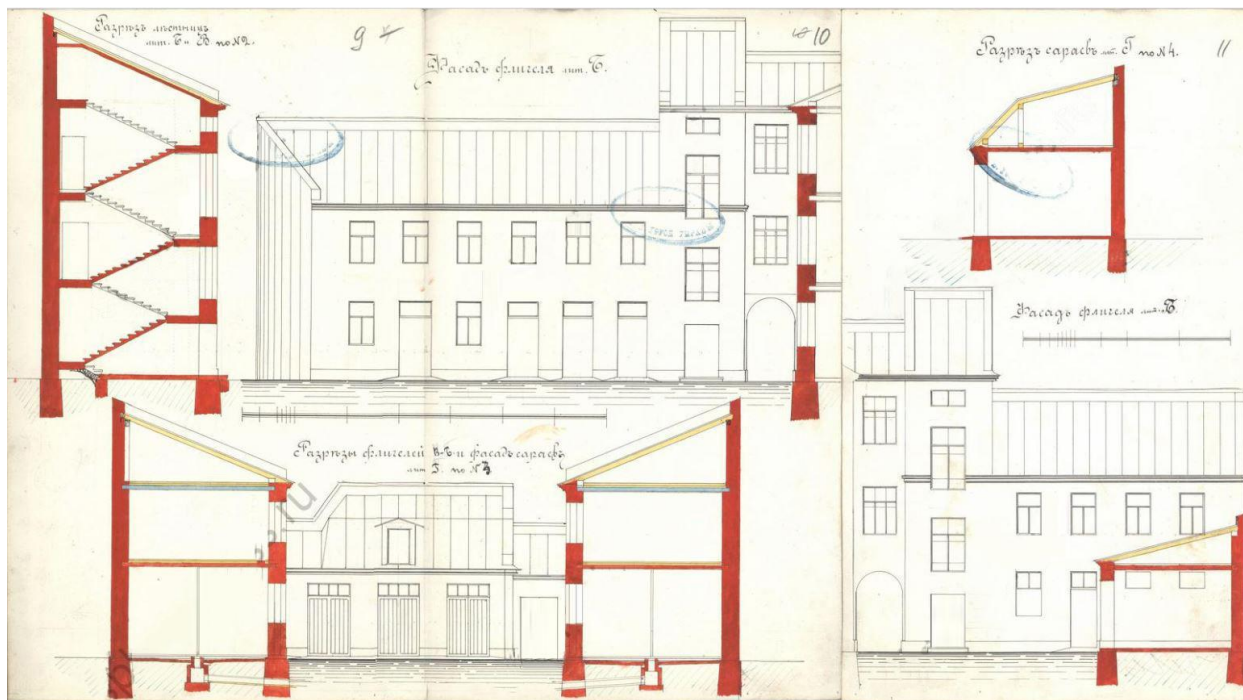 Разрѣзъ лѣстницъ
лит. Б и В. по №2.
9
10
Фасадъ флигеля лит. Б.
Разрѣзъ сараевъ лит. Г по №4.
11
Фасадъ флигеля лит. Б.
Разрѣзы флигелей В-Б и фасадъ сараевъ
лит Г. по № 3